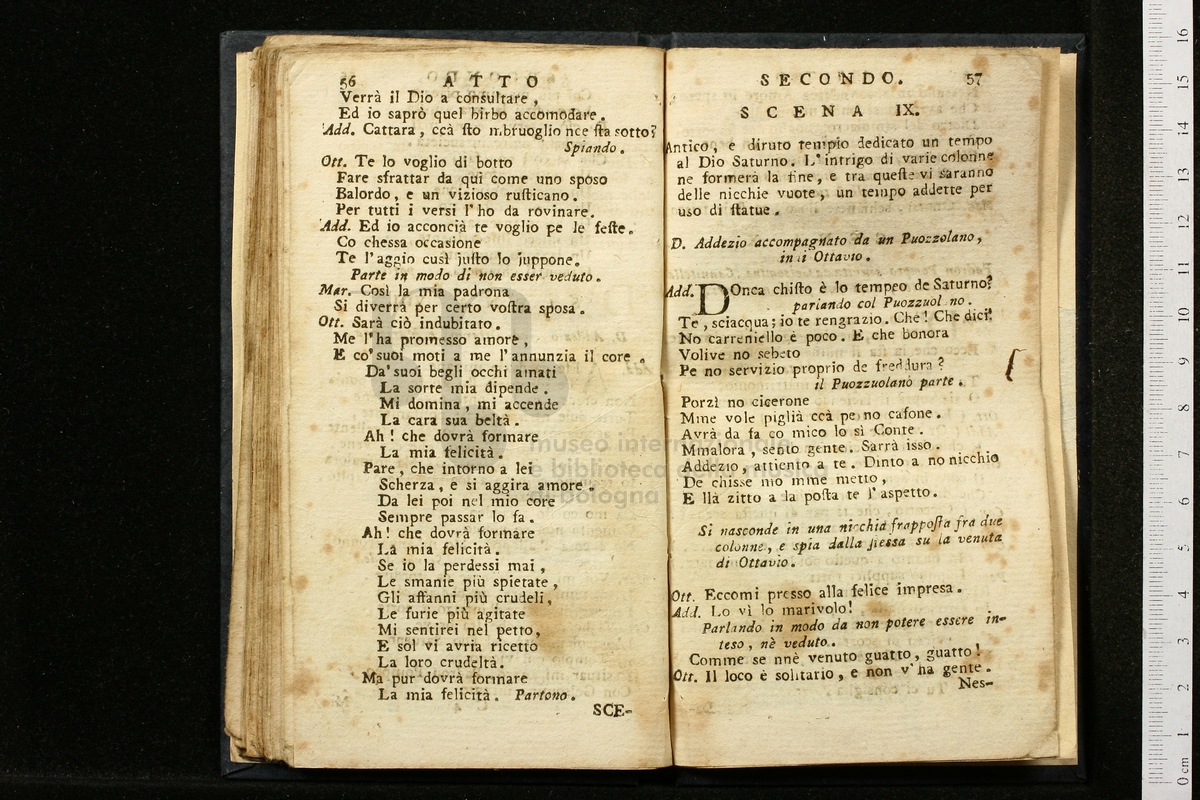 56 ATTO
Verrà il Dio a consultare,
Ed io saprò quel birbo accomodare.
Add. Cattara, ccà sto mbruoglio nce sta sotto?
Spiando.
Ott. Te lo voglio di botto
Fare sfrattar da qui come uno sposo
Balordo, e un vizioso rusticano.
Per tutti i versi l'ho da rovinare.
Add. Ed io acconcià te voglio pe le feste.
Co chessa occasione
Te l'aggio cusì justo lo juppone.
Parte in modo di non esser veduto.
Mar. Così la mia padrona
Si diverrà per certo vostra sposa.
Ott. Sarà ciò indubitato.
Me l'ha promesso amore,
E co' suoi moti a me l'annunzia il core.
Da' suoi begli occhi amati
La sorte mia dipende.
Mi domina, mi accende
La cara sua beltà.
Ah! che dovrà formare
La mia felicità.
Pare, che intorno a lei
Scherza, e si aggira amore.
Da lei poi nel mio core
Sempre passar lo fa.
Ah! che dovrà formare
La mia felicità.
Se io la perdessi mai,
Le smanie più spietate,
Gli affanni più crudeli,
Le furie più agitate
Mi sentirei nel petto,
E sol vi avria ricetto
La loro crudeltà.
Ma pur dovrà formare
La mia felicità. Partono.
SCE-
SECONDO. 57
SCENA IX.
Antico, e diruto tempio dedicato un tempo
al Dio Saturno. L'intrigo di varie colonne
ne formerà la fine, e tra queste vi saranno
delle nicchie vuote, un tempo addette per
uso di statue.
D. Addezio accompagnato da un Puozzolano,
indi Ottavio.
Add. DOnca chisto è lo tempeo de Saturno?
parlando col Puozzuolano.
Te, sciacqua; io te rengrazio. Che! Che dici?
No carreniello è poco. E che bonora
Volive no sebeto
Pe no servizio proprio de freddura?
il Puozzuolano parte.
Porzì no cicerone
Mme vole piglià ccà pe no cafone.
Avrà da fa co mico lo sì Conte.
Mmalora, sento gente. Sarrà isso.
Addezio, attiento a te. Dinto a no nicchio
De chisse mo mme metto,
E llà zitto a la posta te l'aspetto.
Si nasconde in una nicchia frapposta fra due
colonne, e spia dalla stessa su la venuta
di Ottavio.
Ott. Eccomi presso alla felice impresa.
Add. Lo vì lo marivolo!
Parlando in modo da non potere essere in-
teso, nè veduto.
Comme se nnè venuto guatto, guatto!
Ott. Il loco è solitario, e non v'ha gente.
Nes-
museo internazionale
e biblioteca della musica
di bologna
16
15
14
13
12
11
10
9
8
7
6
5
4
3
2
1
0 cm